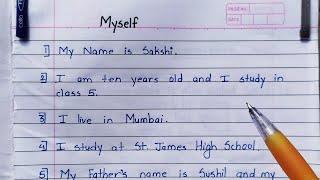 Myself
1] My Name is Sakshi.
2] I am ten years old and I study in
class 5.
3] I live in Mumbai.
4] I study at St. James High School.
5] My Father's name is Sushil and my